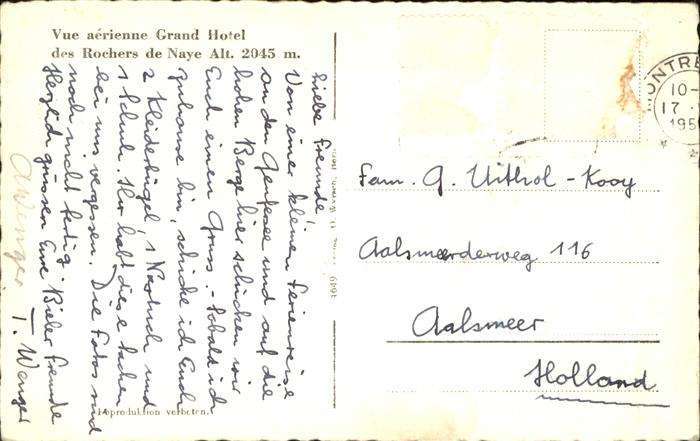 Vue aérienne Grand Hotel
des Rochers de Naye Alt. 2045 m.
Liebe Freunde!
Von einer kleinen Ferienreise
an den Genfersee und auf die
hohen Berge hier schicken wir
Euch einen Gruss. - Sobald ich
zuhause bin, schicke ich Euch
2 Kleiderbügel, 1 Nastuch und
1 Schuh. Ihr habt diese Sachen
bei uns vergessen. Die Fotos sind
noch nicht fertig.
Herzlich grüssen Eure Bieler Freunde
A Wenger T. Wenger
Reproduktion verboten.
1649
MONTRE
10-
17.
195
Fam. G. Uithol-Kooy
Aalsmeerderweg 116
Aalsmeer
Holland